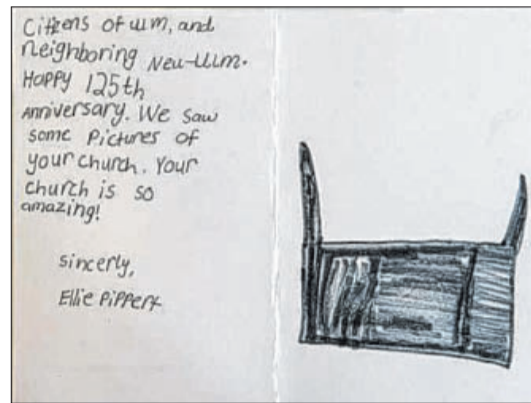 Citizens of ulm, and
neighboring Neu-ulm.
Happy 125th
anniversary. We saw
some pictures of
your church. Your
church is so
amazing!
sincerly,
Ellie Pippert